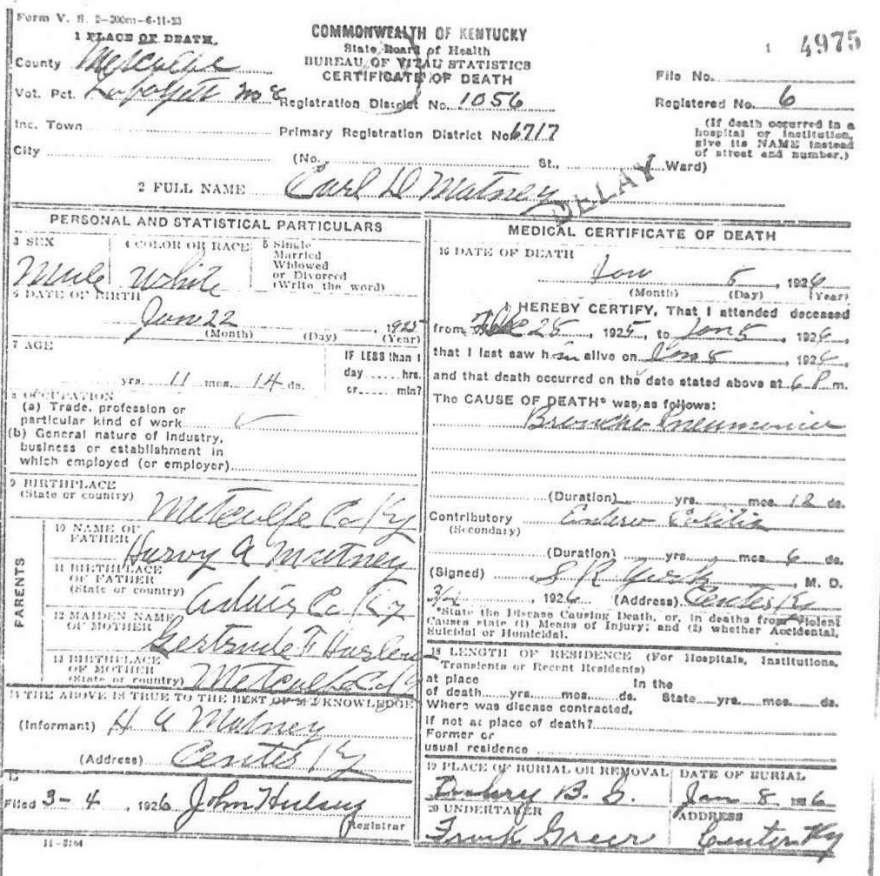 Form V. S. 2-200m-6-11-23
COMMONWEALTH OF KENTUCKY
State Board of Health
BUREAU OF VITAL STATISTICS
CERTIFICATE OF DEATH
1 4975
1 PLACE OF DEATH,
County Metcalfe
Vot. Pct. Lafayette
Registration District No. 1056
File No.
Registered No. 6
Inc. Town
Primary Registration District No 6717
City
(No. St., Ward)
(If death occurred in a hospital or institution, give its NAME instead of street and number.)
2 FULL NAME Earl D Matney
DELAY
PERSONAL AND STATISTICAL PARTICULARS
3 SEX
Male
4 COLOR OR RACE
White
5 Single
Married
Widowed
or Divorced
(Write the word)
6 DATE OF BIRTH
Jan 22, 1925
(Month) (Day) (Year)
7 AGE
yrs. 11 mos. 14 ds.
IF LESS than 1
day hrs.
or min?
8 OCCUPATION
(a) Trade, profession or
particular kind of work
(b) General nature of industry,
business or establishment in
which employed (or employer)
9 BIRTHPLACE
(State or country) Metcalfe Co Ky
PARENTS
10 NAME OF
FATHER
Harvy A Matney
11 BIRTHPLACE
OF FATHER
(State or country) Adair Co Ky
12 MAIDEN NAME
OF MOTHER
Gertrude F
13 BIRTHPLACE
OF MOTHER
(State or country) Metcalfe Co Ky
THE ABOVE IS TRUE TO THE BEST OF MY KNOWLEDGE
(Informant) H A Matney
(Address) Center Ky
15
Filed 3-4, 1926 John
Registrar
11-3184
MEDICAL CERTIFICATE OF DEATH
16 DATE OF DEATH
Jan 5, 1926
(Month) (Day) (Year)
I HEREBY CERTIFY, That I attended deceased
from Dec 25, 1925, to Jan 5, 1926,
that I last saw him alive on Jan 5, 1926,
and that death occurred on the date stated above at 6 P m.
The CAUSE OF DEATH* was as follows:
Broncho Pneumonia
(Duration) yrs. mos. 12 ds.
Contributory Entero Colitis
(Secondary)
(Duration) yrs. mos. 6 ds.
(Signed) S R York, M. D.
3/4, 1926 (Address) Center Ky
*State the Disease Causing Death, or, in deaths from Violent
Causes state (1) Means of Injury; and (2) whether Accidental,
Suicidal or Homicidal.
18 LENGTH OF RESIDENCE (For Hospitals, Institutions,
Transients or Recent Residents)
at place In the
of death yrs. mos. ds. State yrs. mos. ds.
Where was disease contracted,
if not at place of death?
Former or
usual residence
19 PLACE OF BURIAL OR REMOVAL
B. G.
DATE OF BURIAL
Jan 8 1926
20 UNDERTAKER
Frank Greer
ADDRESS
Center Ky